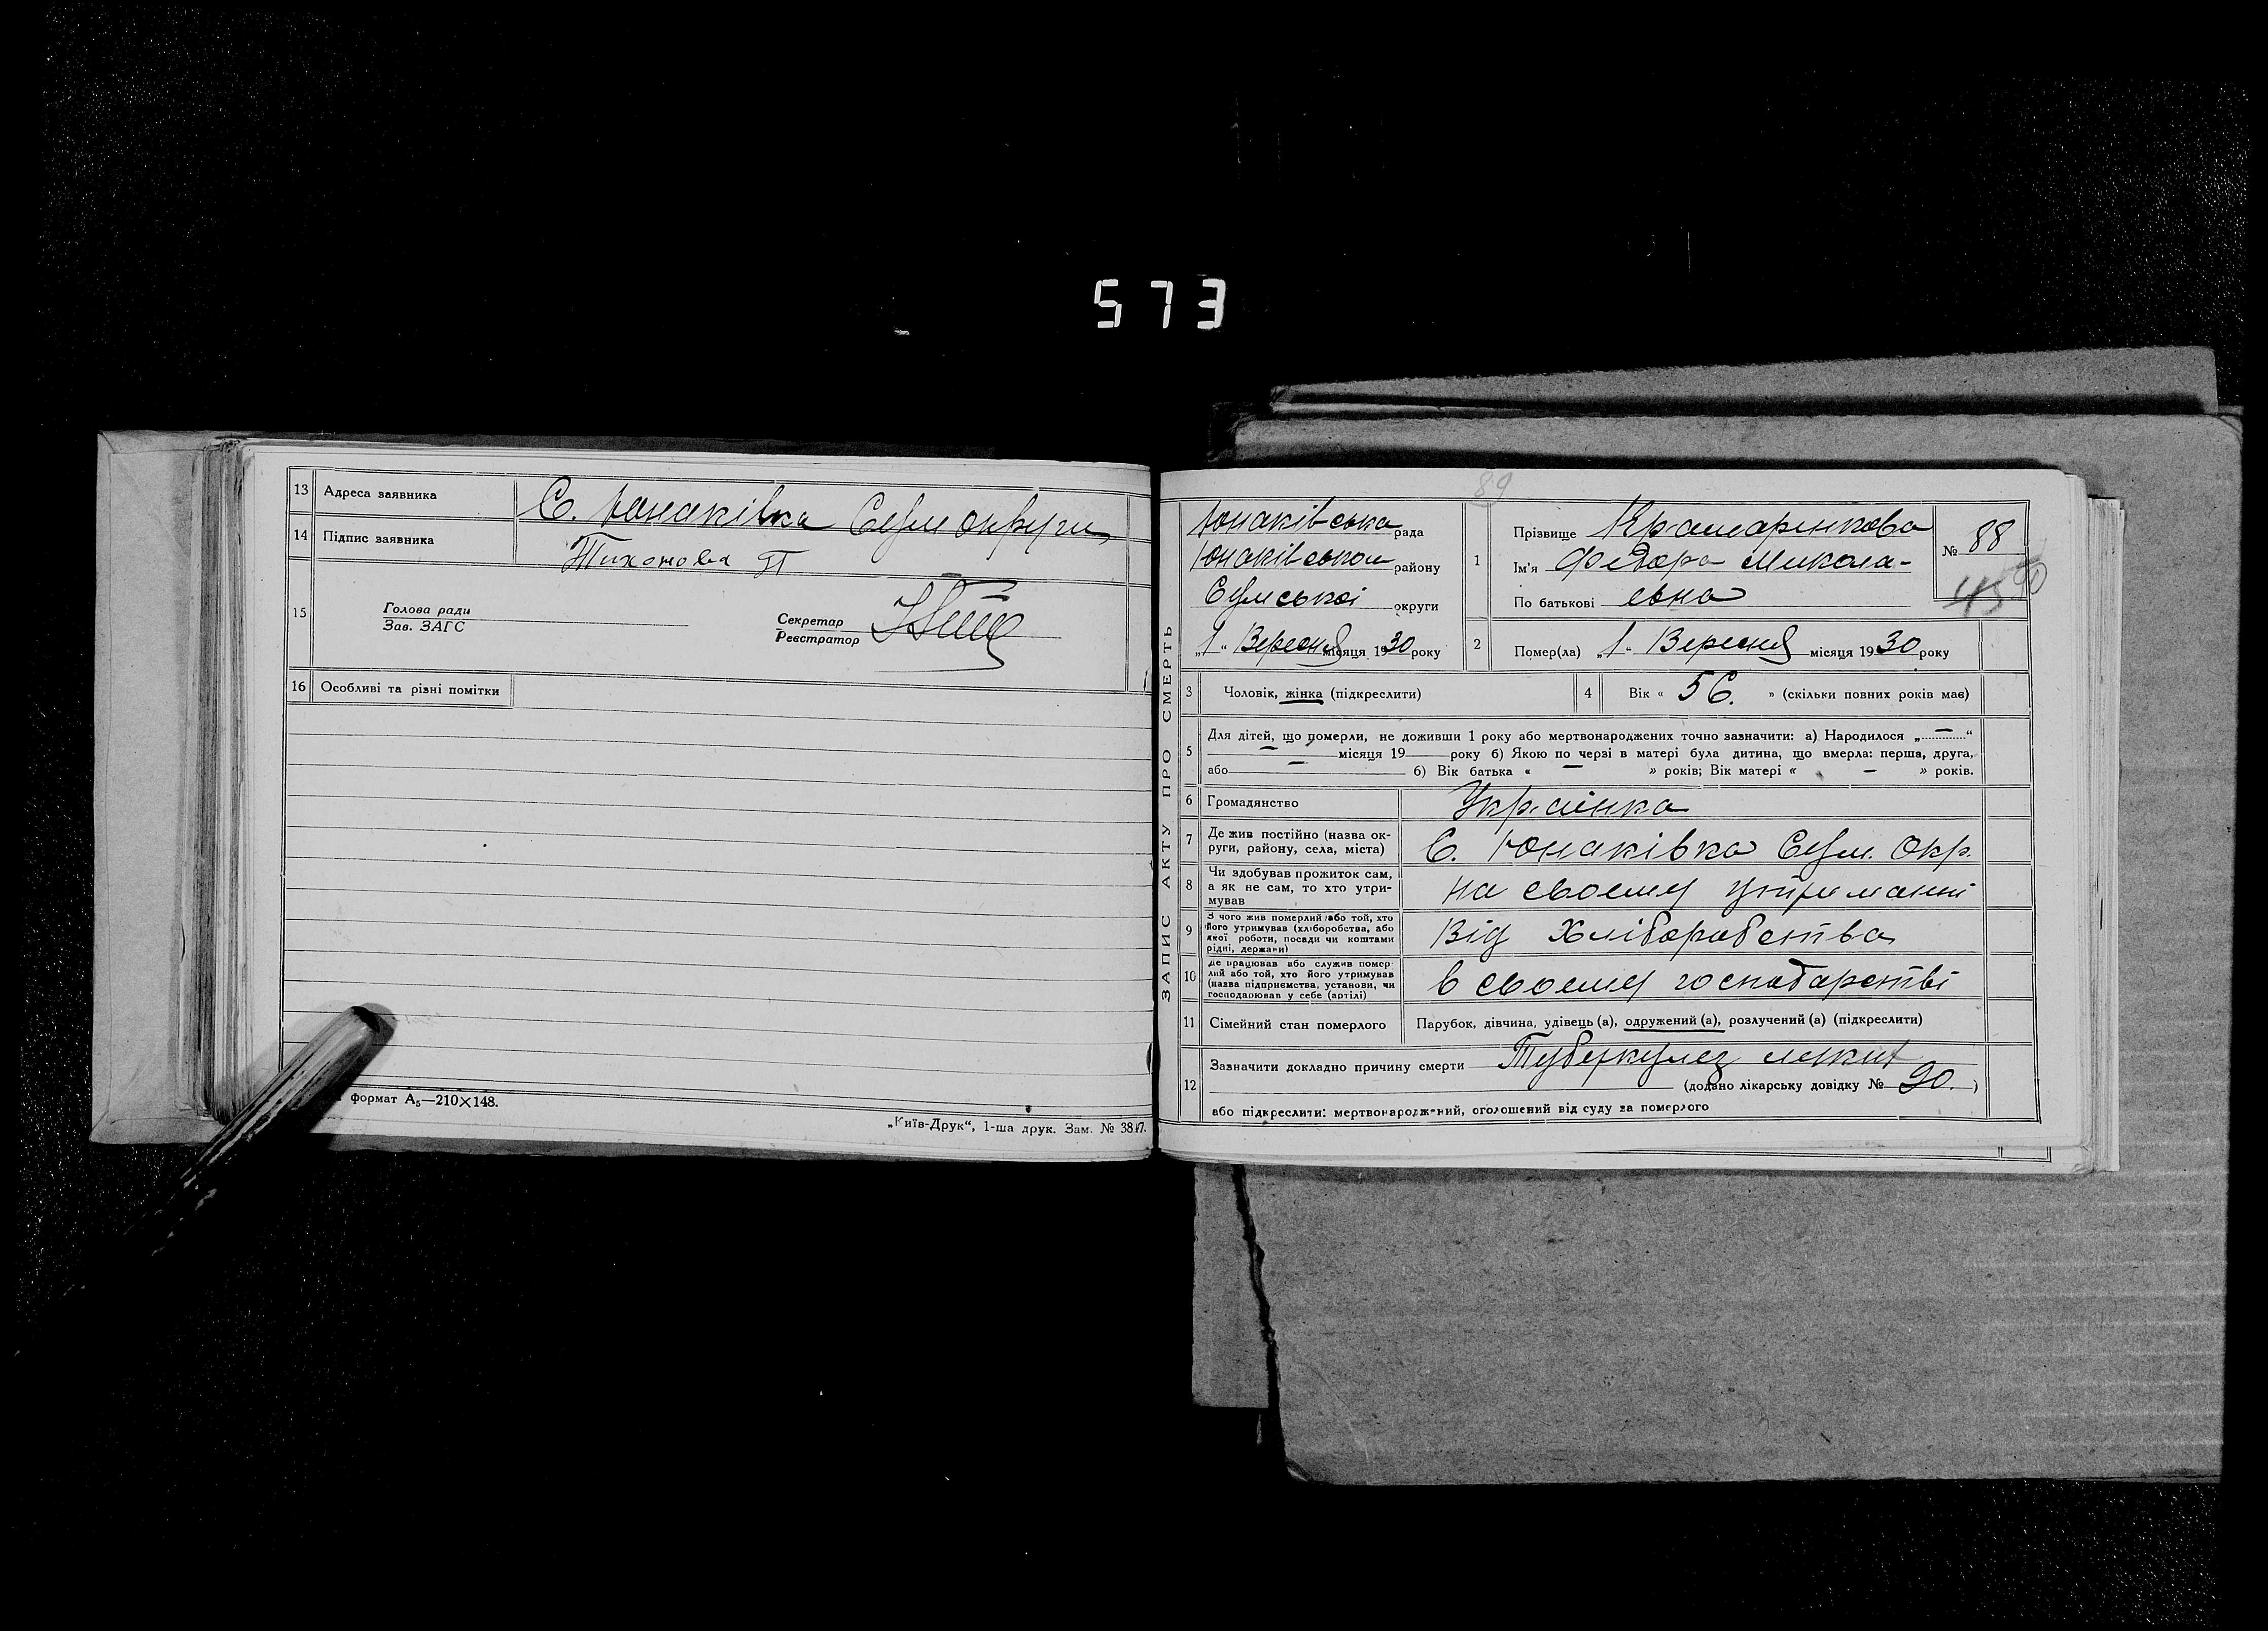 573
13 Адреса заявника С. Юнаківка Сум округи
14 Підпис заявника Тихонова П
15 Голова ради
Зав. ЗАГС
Секретар
Реєстратор
16 Особливі та різні помітки
формат А5—210×148.
„Київ-Друк“, 1-ша друк. Зам. № 3847.
89
ЗАПИС АКТУ ПРО СМЕРТЬ
Юнаківська рада
Юнаківськом району
Сумської округи
„1“ Вересня місяця 1930 року
1 Прізвище Крамаренкова
Ім'я Федора Микола-
По батькові евна
№ 88
2 Помер(ла) „1“ Вересня місяця 1930 року
3 Чоловік, жінка (підкреслити)
4 Вік « 56. » (скільки повних років має)
5 Для дітей, що померли, не доживши 1 року або мертвонароджених точно зазначити: а) Народилося „ — “
— місяця 19 року б) Якою по черзі в матері була дитина, що вмерла: перша, друга,
або — б) Вік батька « — » років; Вік матері « — » років.
6 Громадянство Украінка
7 Де жив постійно (назва ок-
руги, району, села, міста) С. Юнаківка Сум. Окр.
8 Чи здобував прожиток сам,
а як не сам, то хто утри-
мував на своему утриманні
9 З чого жив померлий або той, хто
його утримував (хліборобства, або
якої роботи, посади чи коштами
рідні, держави) Від Хліборобства
10 Де працював або служив помер-
лий або той, хто його утримував
(назва підприємства, установи, чи
господарював у себе (артілі) в своему господарстві
11 Сімейний стан померлого Парубок, дівчина, удівець (а), одружений (а), розлучений (а) (підкреслити)
12 Зазначити докладно причину смерти Туберкулез легких
(додано лікарську довідку № 90. )
або підкреслити: мертвонароджений, оголошений від суду за померлого